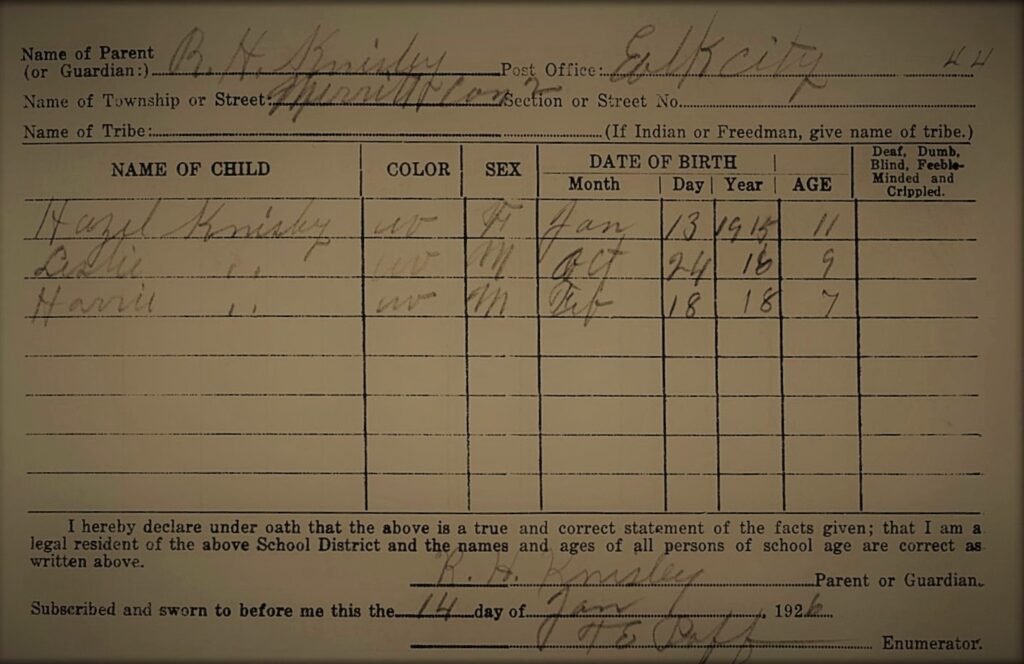 Name of Parent
(or Guardian:) R. H. Knisley Post Office: Elk city 44
Name of Township or Street: Merritt Con 2 Section or Street No.
Name of Tribe: (If Indian or Freedman, give name of tribe.)
NAME OF CHILD COLOR SEX DATE OF BIRTH AGE Deaf, Dumb, Blind, Feeble-Minded and Crippled.
Month Day Year
Hazel Knisley w F Jan 13 1915 11
Leslie " w M Oct 24 16 9
Harrie " w M Feb 18 18 7
I hereby declare under oath that the above is a true and correct statement of the facts given; that I am a
legal resident of the above School District and the names and ages of all persons of school age are correct as
written above.
R. H. Knisley Parent or Guardian.
Subscribed and sworn to before me this the 14 day of Jan, 1926
T E Poff Enumerator.